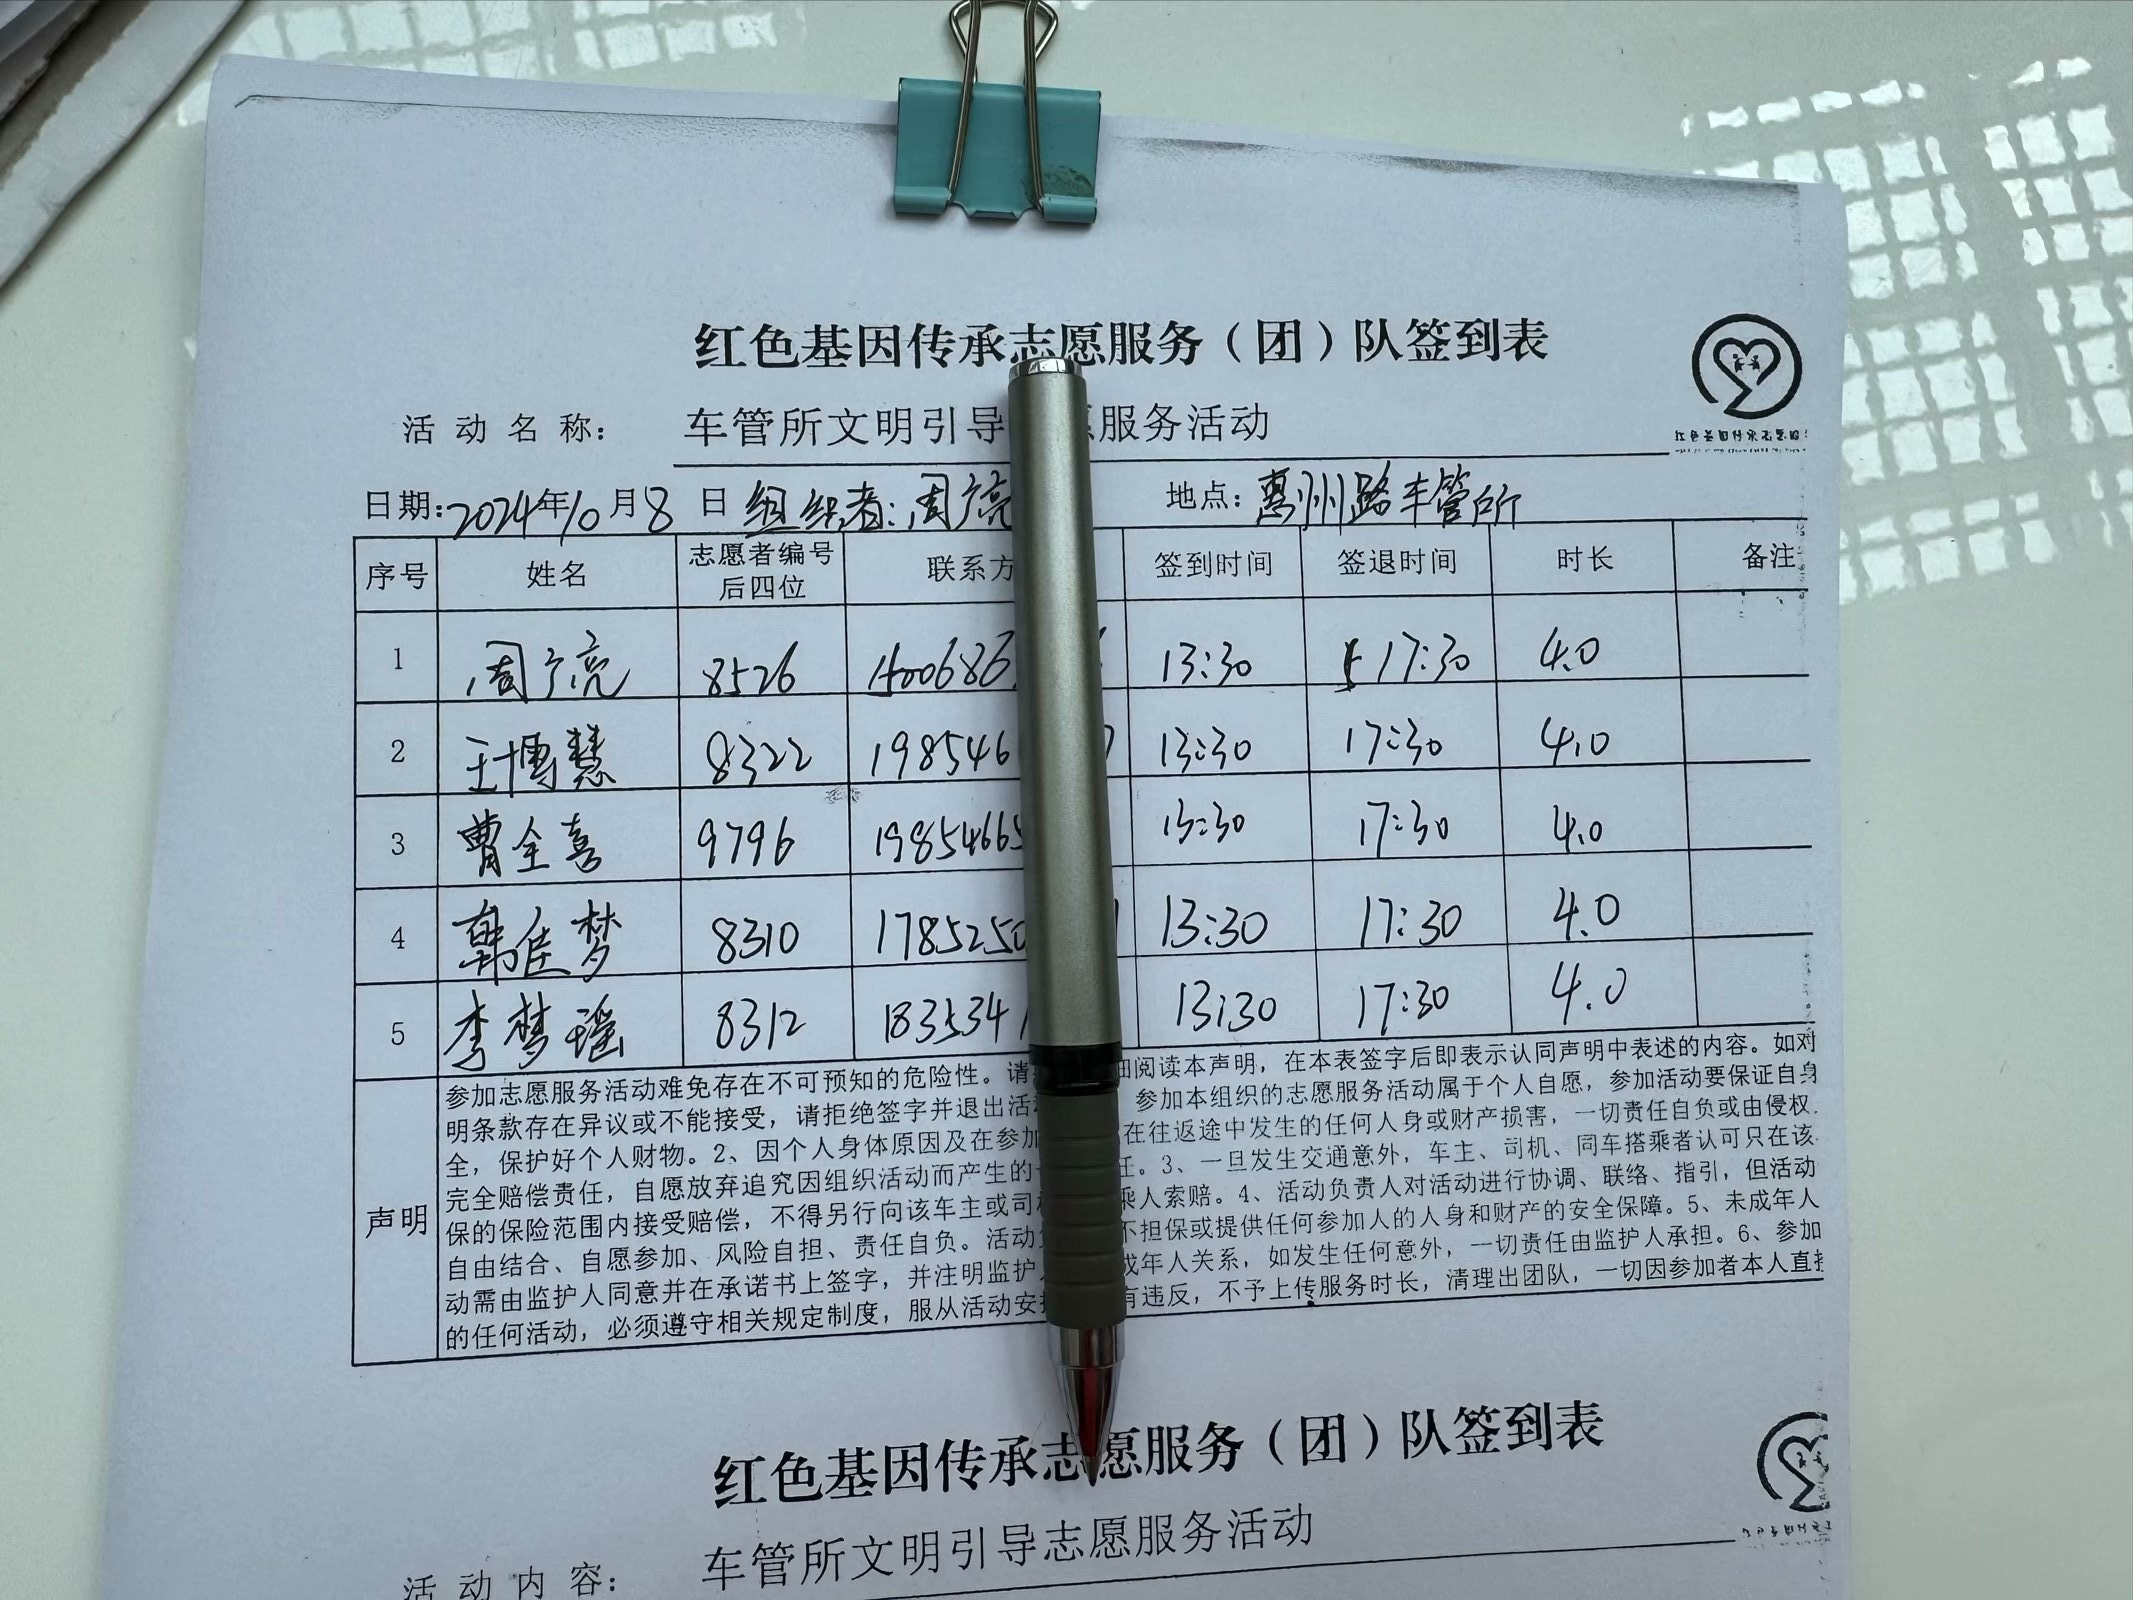 红色基因传承志愿服务（团）队签到表
活动名称： 车管所文明引导 愿服务活动
日期：2024年10月8日 组织者：周广亮 地点：惠州路车管所
序号 姓名 志愿者编号后四位 联系方 签到时间 签退时间 时长 备注
1 周广亮 8526 13:30 17:30 4.0
2 王博慧 8322 198546 13:30 17:30 4.0
3 曹全喜 9796 19854665 13:30 17:30 4.0
4 韩佳梦 8310 1785250 13:30 17:30 4.0
5 李梦瑶 8312 183534 13:30 17:30 4.0
声明
参加志愿服务活动难免存在不可预知的危险性。请 细阅读本声明，在本表签字后即表示认同声明中表述的内容。如对
明条款存在异议或不能接受，请拒绝签字并退出活 参加本组织的志愿服务活动属于个人自愿，参加活动要保证自身
全，保护好个人财物。2、因个人身体原因及在参加 在往返途中发生的任何人身或财产损害，一切责任自负或由侵权
完全赔偿责任，自愿放弃追究因组织活动而产生的 任。3、一旦发生交通意外，车主、司机、同车搭乘者认可只在该
保的保险范围内接受赔偿，不得另行向该车主或司 乘人索赔。4、活动负责人对活动进行协调、联络、指引，但活动
自由结合、自愿参加、风险自担、责任自负。活动 不担保或提供任何参加人的人身和财产的安全保障。5、未成年人
动需由监护人同意并在承诺书上签字，并注明监护 成年人关系，如发生任何意外，一切责任由监护人承担。6、参加
的任何活动，必须遵守相关规定制度，服从活动安 有违反，不予上传服务时长，清理出团队，一切因参加者本人直接
红色基因传承志愿服务（团）队签到表
活动内容： 车管所文明引导志愿服务活动